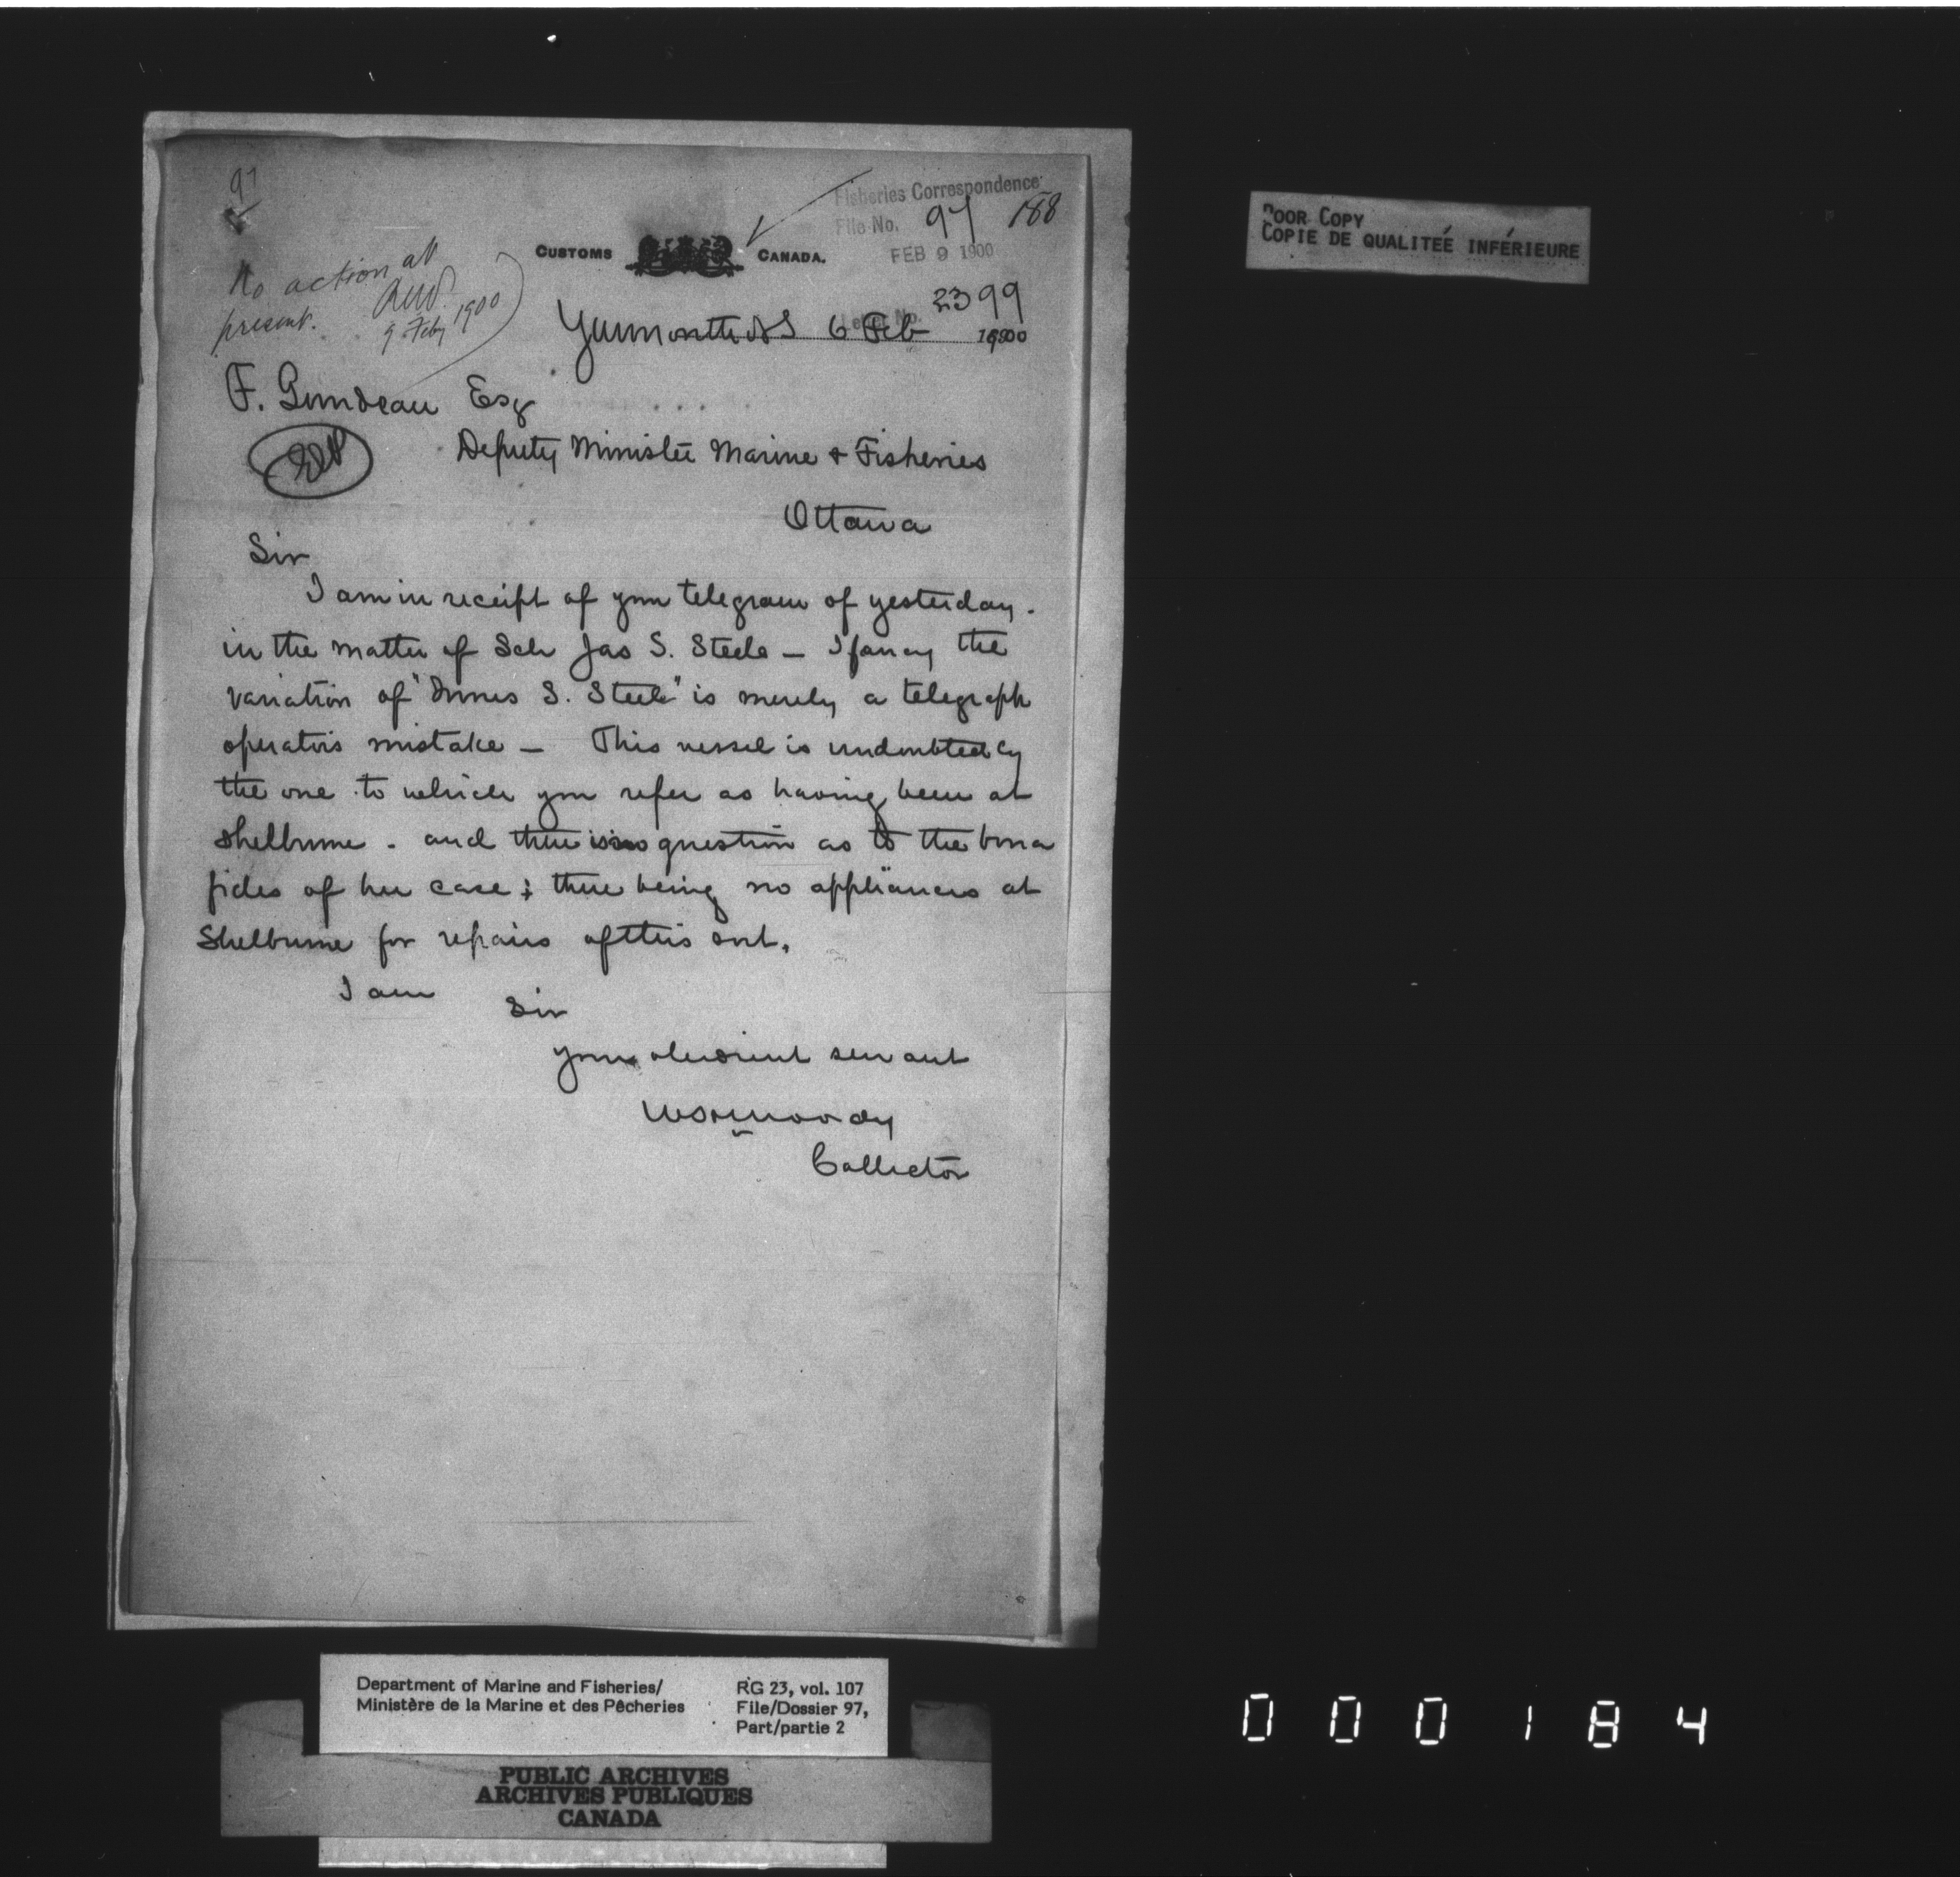 97
Fisheries Correspondence
File No. 97 188
FEB 9 1900
Letter No. 2399
CUSTOMS CANADA.
No action at
present.
9 Feby 1900
Yarmouth NS 6 Feb 1900
F. Gourdeau Esq
Deputy Minister Marine & Fisheries
Ottawa
Sir
I am in receipt of your telegram of yesterday.
in the matter of Sch Jas S. Steele — I fancy the
variation of "Innes S. Steele" is merely a telegraph
operators mistake — This vessel is undoubtedly
the one to which you refer as having been at
Shelburne. and there is no question as to the bona
fides of her case; there being no appliances at
Shelburne for repairs of this sort.
I am
Sir
Your obedient servant
Moody
Collector
POOR COPY
COPIE DE QUALITEÉ INFÉRIEURE
Department of Marine and Fisheries/
Ministère de la Marine et des Pêcheries
RG 23, vol. 107
File/Dossier 97,
Part/partie 2
PUBLIC ARCHIVES
ARCHIVES PUBLIQUES
CANADA
000184